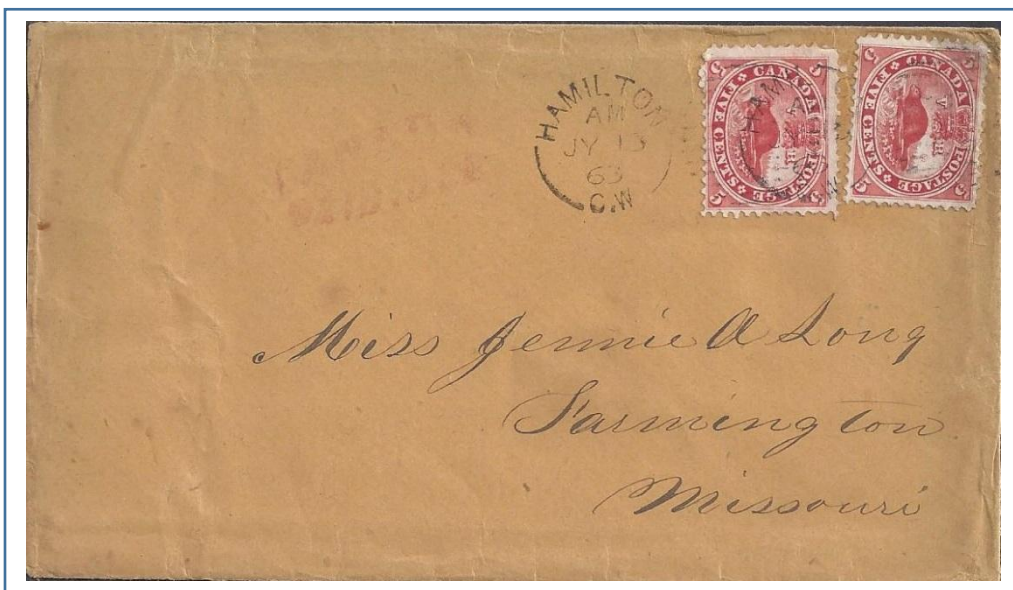 HAMILTON
AM
JY 13
63
C.W
CANADA POSTAGE
FIVE CENTS
5 5 5 5
CANADA POSTAGE
FIVE CENTS
5 5 5 5
HAM
Miss Jennie A Long
Farmington
Missouri